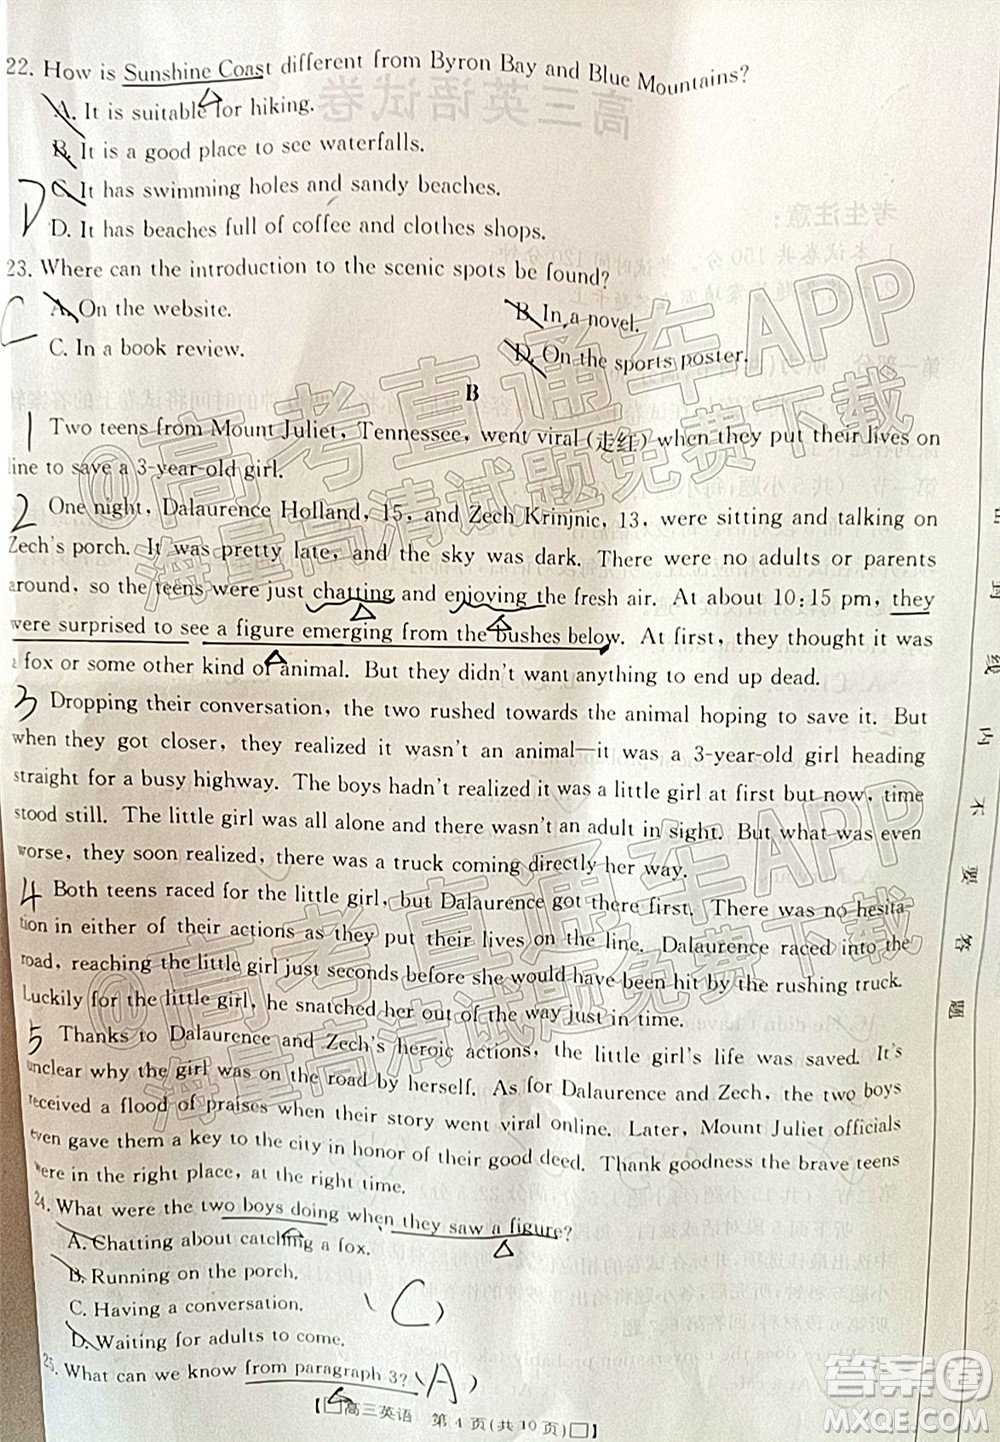 22. How is Sunshine Coast different from Byron Bay and Blue Mountains?
A. It is suitable for hiking.
B. It is a good place to see waterfalls.
C. It has swimming holes and sandy beaches.
D
D. It has beaches full of coffee and clothes shops.
23. Where can the introduction to the scenic spots be found?
C
A. On the website.
B. In a novel.
C. In a book review.
D. On the sports poster.
B
1 Two teens from Mount Juliet, Tennessee, went viral (走红) when they put their lives on
line to save a 3-year-old girl.
2 One night, Dalaurence Holland, 15, and Zech Krinjnic, 13, were sitting and talking on
Zech's porch. It was pretty late, and the sky was dark. There were no adults or parents
around, so the teens were just chatting and enjoying the fresh air. At about 10:15 pm, they
were surprised to see a figure emerging from the bushes below. At first, they thought it was
a fox or some other kind of animal. But they didn't want anything to end up dead.
3 Dropping their conversation, the two rushed towards the animal hoping to save it. But
when they got closer, they realized it wasn't an animal—it was a 3-year-old girl heading
straight for a busy highway. The boys hadn't realized it was a little girl at first but now, time
stood still. The little girl was all alone and there wasn't an adult in sight. But what was even
worse, they soon realized, there was a truck coming directly her way.
4 Both teens raced for the little girl, but Dalaurence got there first. There was no hesita-
tion in either of their actions as they put their lives on the line. Dalaurence raced into the
road, reaching the little girl just seconds before she would have been hit by the rushing truck.
Luckily for the little girl, he snatched her out of the way just in time.
5 Thanks to Dalaurence and Zech's heroic actions, the little girl's life was saved. It's
unclear why the girl was on the road by herself. As for Dalaurence and Zech, the two boys
received a flood of praises when their story went viral online. Later, Mount Juliet officials
even gave them a key to the city in honor of their good deed. Thank goodness the brave teens
were in the right place, at the right time.
24. What were the two boys doing when they saw a figure?
A. Chatting about catching a fox.
B. Running on the porch.
C. Having a conversation.
(C)
D. Waiting for adults to come.
25. What can we know from paragraph 3?
(A)
【□高三英语 第 4 页(共 10 页)□】
线
内
不
要
答
题
@高考直通车APP
海量高清试题免费下载
@高考直通车APP
海量高清试题免费下载
答案圈
MXQE.COM